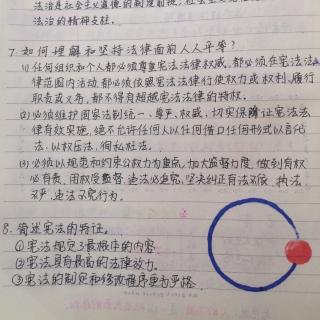 法治是社会主义道德的制度前提，社会主义
法治的精神支柱。
7. 如何理解和坚持法律面前人人平等？
⑴任何组织和个人都必须尊重宪法法律权威，都必须在宪法法
律范围内活动，都必须依照宪法法律行使权力或权利、履行
职责或义务，都不得有超越宪法法律的特权。
⑵必须维护国家法制统一、尊严、权威，切实保障证宪法法
律有效实施，绝不允许任何人以任何借口任何形式以言代
法、以权压法、徇私枉法。
⑶必须以规范和约束公权力为重点，加大监督力度，做到有权
必有责、用权受监督、违法必追究，坚决纠正有法不依、执法
不严、违法不究行为。
8. 简述宪法的特征。
①宪法规定了最根本的内容
②宪法具有最高的法律效力。
③宪法的制定和修改程序更为严格